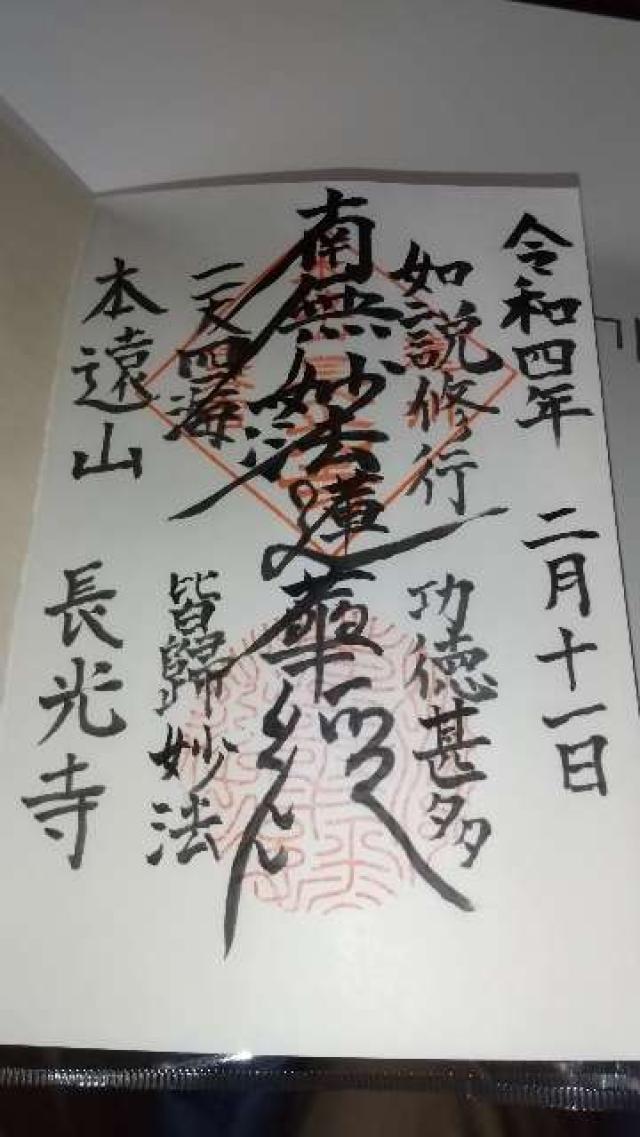 令和四年 二月十一日
如説修行 功徳甚多
南無妙法蓮華經
一天四海 皆歸妙法
本遠山 長光寺